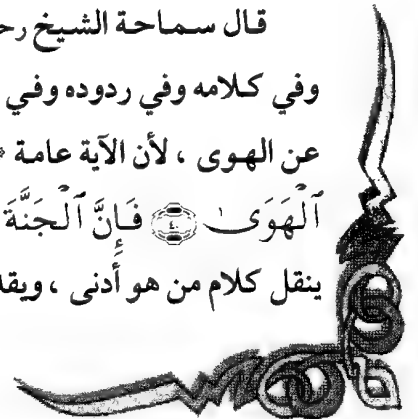 قال سماحة الشيخ رح
وفي كلامه وفي ردوده وفي
عن الهوى ، لأن الآية عامة
ٱلْهَوَىٰ ﴿٤٠﴾ فَإِنَّ ٱلْجَنَّةَ
ينقل كلام من هو أدنى ، ويقد